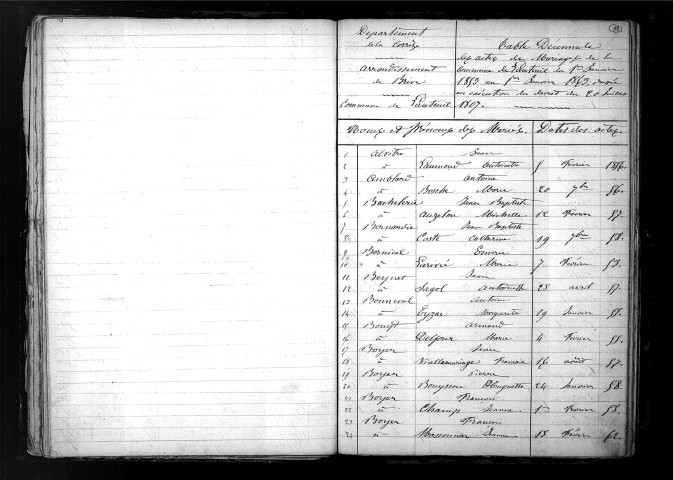 Département
de la Corrèze
arrondissement
de Brive
Commune de
Table Décennale
des actes de Mariages de la
Commune de du 1er Janvier
1853 au 1er Janvier 1863, dressé
en exécution du décret du 20 Juillet
1807.
Noms et Prénoms des Mariés. Dates des actes.
1 Jean
2 à Antoinette 8 février 1856.
3 Amblard Antoine
4 à Bosche Marie 20 7bre 56.
5 Bachelerie Jean Baptiste
6 à Auzelou Michelle 12 février 57.
7 Jean Baptiste
8 à Coste Catherine 19 7bre 58.
9
10 à Marie 7 février 53.
11 Beynet Jean
12 à Sagol Antoinette 28 avril 57.
13 Bonneval Antoine
14 à Eyzac Marguerite 19 Janvier 58.
15 Armand
16 à Delfour Marie 4 février 58.
17 Boyer Jean
18 à 16 août 57.
19 Boyer Pierre
20 à Bouysson 24 Janvier 58.
21 Boyer François
22 à Champ Jeanne 1er février 58.
23 Boyer François
24 à Massonnie Jeanne 18 février 62.